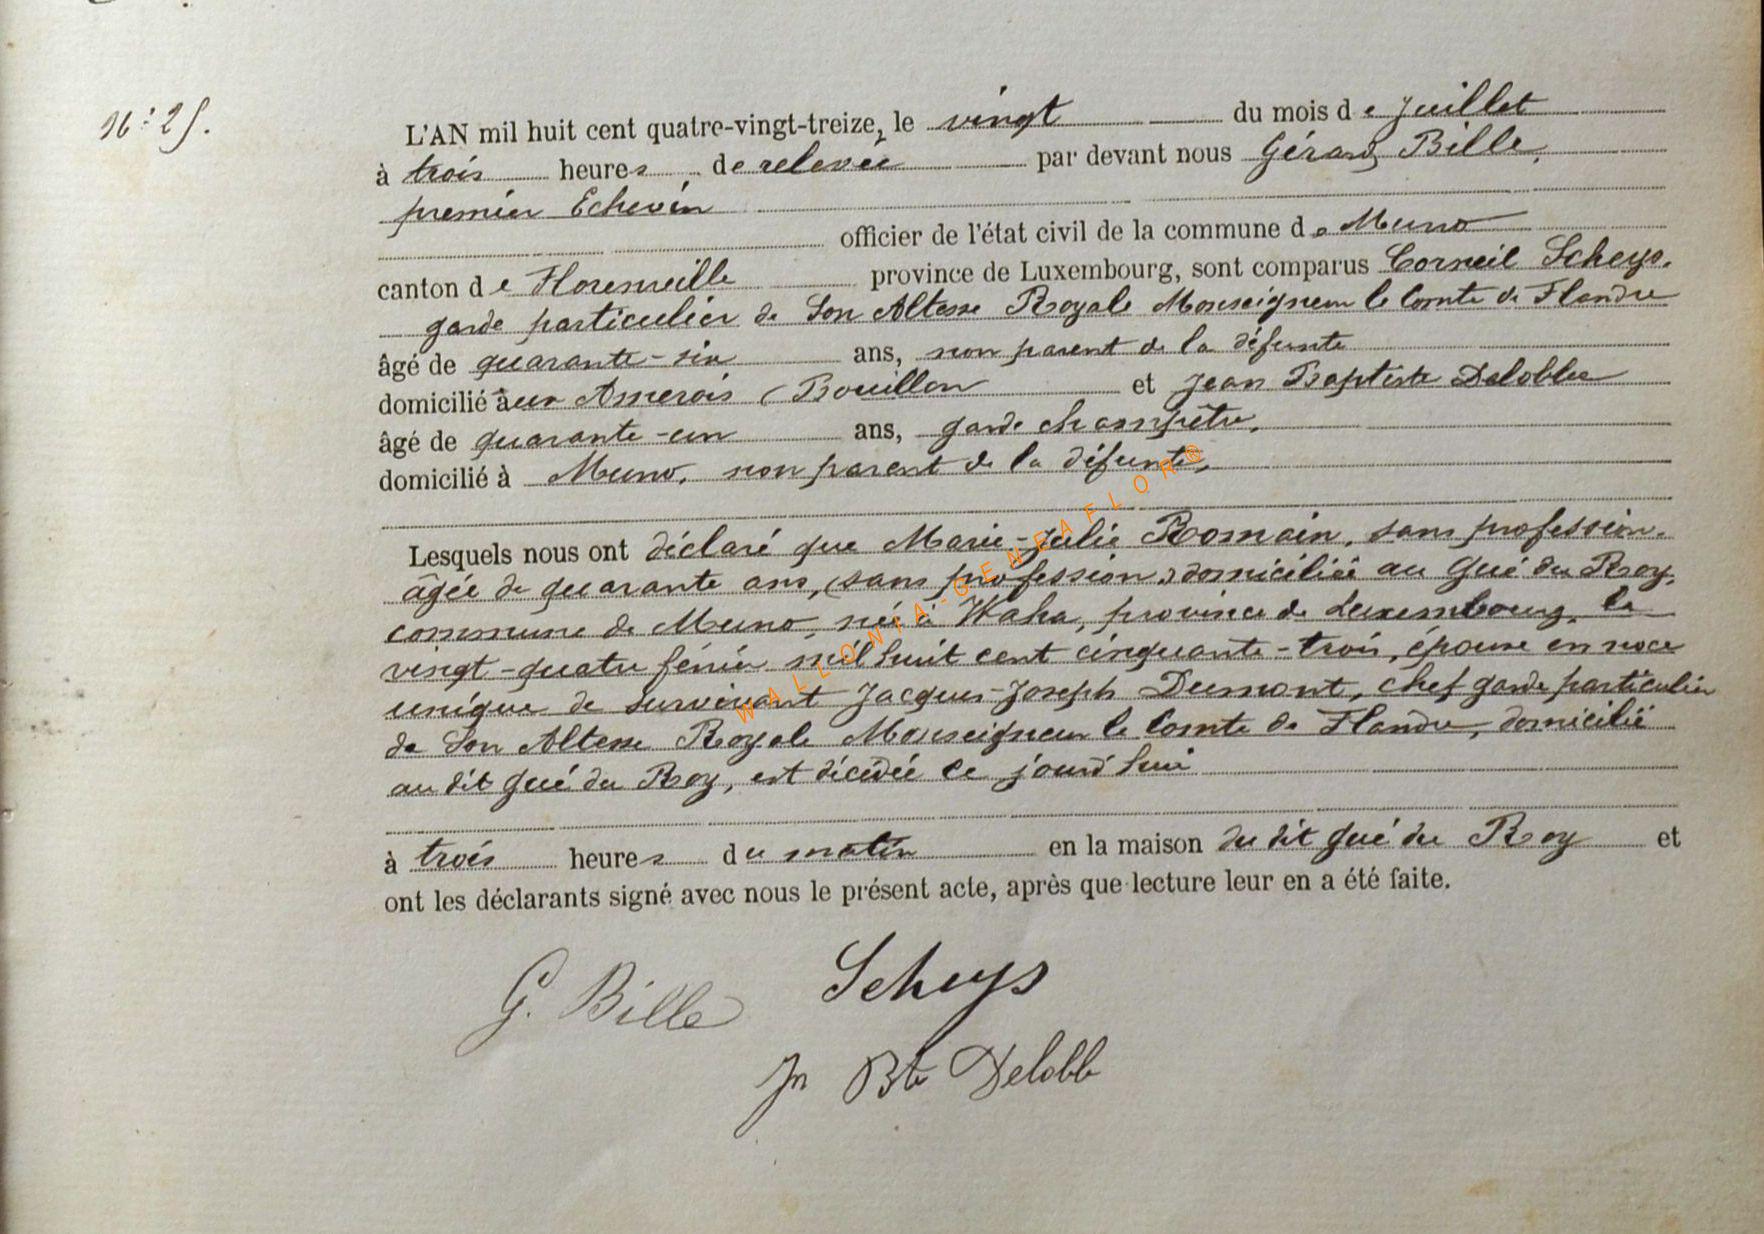 N° 25.
L'AN mil huit cent quatre-vingt-treize, le vingt du mois de Juillet
à trois heures de relevée par devant nous Gérard Bille,
premier Echevin
officier de l'état civil de la commune de Muno
canton de Florenville province de Luxembourg, sont comparus Corneil Scheys,
garde particulier de Son Altesse Royale Monseigneur le Comte de Flandre
âgé de quarante-six ans, non parent de la défunte
domicilié aux Amerois (Bouillon et Jean Baptiste Delobbe
âgé de quarante-un ans, garde champêtre,
domicilié à Muno, non parent de la défunte,
Lesquels nous ont déclaré que Marie-Julie Romain, sans profession,
âgée de quarante ans, (sans profession) domiciliée au Gué du Roy,
commune de Muno, née à Waha, province de Luxembourg, le
vingt-quatre février mil huit cent cinquante-trois, épouse en noce
unique de survivant Jacques-Joseph Dumont, chef garde particulier
de Son Altesse Royale Monseigneur le Comte de Flandre, domicilié
au dit Gué du Roy, est décédée ce jourd'hui
à trois heures du matin en la maison du dit Gué du Roy et
ont les déclarants signé avec nous le présent acte, après que lecture leur en a été faite.
G. Bille Scheys
Jn Bte Delobbe
WALLONIA-GENEAFLOR®